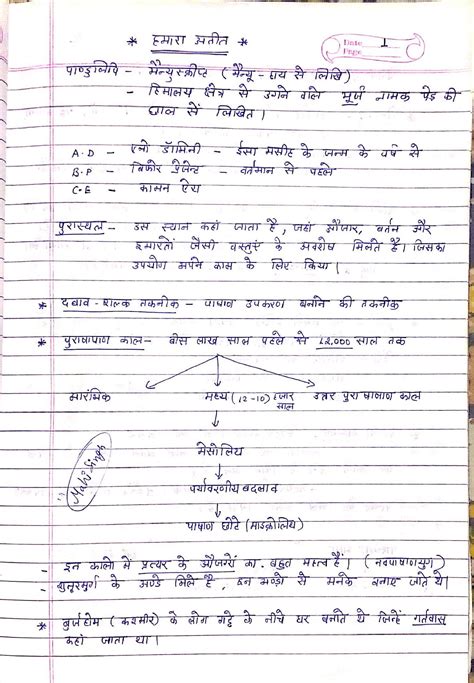 * हमारा अतीत *
Date
Page 1
पाण्डुलिपि - मैन्युस्क्रीप्ट (मैन्यू - हाथ से लिखि)
- हिमालय क्षेत्र से उगने वाले भूर्ज नामक पेड़ की
छाल से लिखित।
A.D - एनो डॉमिनी - ईसा मसीह के जन्म के वर्ष से
B.P - बिफोर प्रेजेन्ट - वर्तमान से पहले
C.E - कामन ऐरा
पुरास्थल - उस स्थान कहा जाता है, जहां औजार, बर्तन और
इमारतों जैसी वस्तुएं के अवशेष मिलते है। जिसका
उपयोग अपने काम के लिए किया।
* दबाव-शल्क तकनीक - पाषाण उपकरण बनाने की तकनीक
* पुराषाषाण काल - बीस लाख साल पहले से 12,000 साल तक
आरंभिक
मध्य (12-10) हजार साल
उत्तर पुरापाषाण काल
मेसोलिथ
पर्यावरणीय बदलाव
पाषाण छोटे (माइक्रोलिथ)
Mahi Singh
- इन कालो में पत्थर के औजारों का बहुत महत्व है। (नवपाषाणयुग)
- शुतुरमुर्ग के अण्डे मिले है, इन अण्डो से मनके बनाए जाते थे।
* बुर्जहोम (कश्मीर) के लोग गड्ढे के नीचे घर बनाते थे जिन्हें गर्तवास
कहा जाता था।